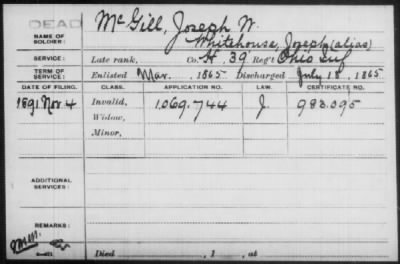 DEAD
Mc Gill, Joseph W.
NAME OF SOLDIER: Whitehouse, Joseph (alias)
SERVICE: Late rank, Co. H, 39 Reg't Ohio Inf
TERM OF SERVICE: Enlisted Mar. , 1865 Discharged July 18, 1865
DATE OF FILING. CLASS. APPLICATION NO. LAW. CERTIFICATE NO.
1891 Nov. 4 Invalid, 1,069.744 J. 983.095
Widow,
Minor,
ADDITIONAL SERVICES:
REMARKS:
Died , 1 , at